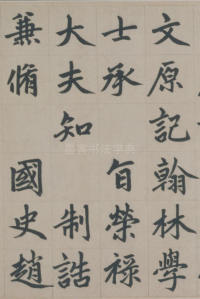 文原記翰林學
士承旨榮祿
大夫知制誥
兼脩國史趙